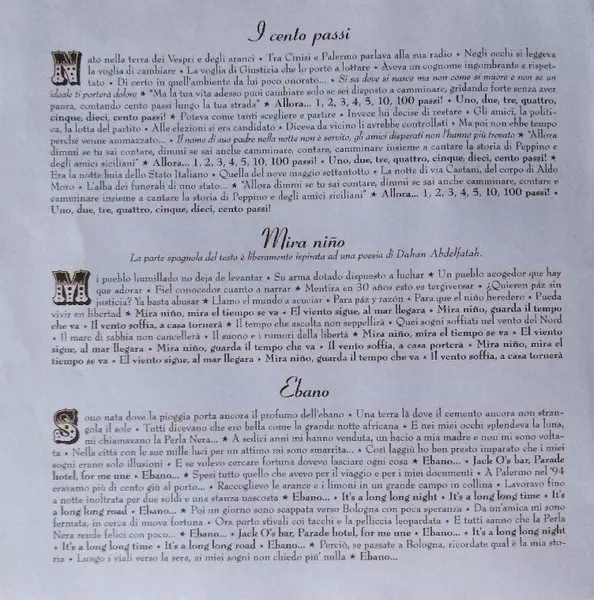 I cento passi
Nato nella terra dei Vespri e degli aranci • Tra Cinisi e Palermo parlava alla sua radio • Negli occhi si leggeva
la voglia di cambiare • La voglia di Giustizia che lo portò a lottare • Aveva un cognome ingombrante e rispet-
tato • Di certo in quell'ambiente da lui poco onorato... • Si sa dove si nasce ma non come si muore e non se un
ideale ti porterà dolore ★ "Ma la tua vita adesso puoi cambiare solo se sei disposto a camminare, gridando forte senza aver
paura, contando cento passi lungo la tua strada" ★ Allora... 1, 2, 3, 4, 5, 10, 100 passi! • Uno, due, tre, quattro,
cinque, dieci, cento passi! ★ Poteva come tanti scegliere e partire • Invece lui decise di restare • Gli amici, la politi-
ca, la lotta del partito • Alle elezioni si era candidato • Diceva da vicino li avrebbe controllati • Ma poi non ebbe tempo
perché venne ammazzato... • Il nome di suo padre nella notte non è servito, gli amici disperati non l'hanno più trovato ★ "Allora
dimmi se tu sai contare, dimmi se sai anche camminare, contare, camminare insieme a cantare la storia di Peppino e
degli amici siciliani" ★ Allora... 1, 2, 3, 4, 5, 10, 100 passi! • Uno, due, tre, quattro, cinque, dieci, cento passi! ★
Era la notte buia dello Stato Italiano • Quella del nove maggio settantotto • La notte di via Caetani, del corpo di Aldo
Moro • L'alba dei funerali di uno stato... ★ "Allora dimmi se tu sai contare, dimmi se sai anche camminare, contare e
camminare insieme a cantare la storia di Peppino e degli amici siciliani" ★ Allora... 1, 2, 3, 4, 5, 10, 100 passi! •
Uno, due, tre, quattro, cinque, dieci, cento passi!
Mira niño
La parte spagnola del testo è liberamente ispirata ad una poesia di Dahan Abdelfatah.
Mi pueblo humillado no deja de levantar • Su arma dotado dispuesto a luchar ★ Un pueblo acogedor que hay
que adorar • Fiel conocedor cuanto a narrar ★ Mentira en 30 años esto es tergiversar • ¿Quieren páz sin
justicia? Ya basta abusar ★ Llamo el mundo a acuciar • Para páz y razón • Para que el niño heredero • Pueda
vivir en libertad ★ Mira niño, mira el tiempo se va • El viento sigue, al mar llegara • Mira niño, guarda il tempo
che va • Il vento soffia, a casa tornerà ★ Il tempo che ascolta non seppellirà • Quei sogni soffiati nel vento del Nord
• Il mare di sabbia non cancellerà • Il suono e i rumori della libertà ★ Mira niño, mira el tiempo se va • El viento
sigue, al mar llegara • Mira niño, guarda il tempo che va • Il vento soffia, a casa porterà ★ Mira niño, mira el
tiempo se va • El viento sigue, al mar llegara • Mira niño, guarda il tempo che va • Il vento soffia, a casa tornerà
Ebano
Sono nata dove la pioggia porta ancora il profumo dell'ebano • Una terra là dove il cemento ancora non stran-
gola il sole • Tutti dicevano che ero bella come la grande notte africana • E nei miei occhi splendeva la luna,
mi chiamavano la Perla Nera... ★ A sedici anni mi hanno venduta, un bacio a mia madre e non mi sono volta-
ta • Nella città con le sue mille luci per un attimo mi sono smarrita... • Così laggiù ho ben presto imparato che i miei
sogni erano solo illusioni • E se volevo cercare fortuna dovevo lasciare ogni cosa ★ Ebano... • Jack O's bar, Parade
hotel, for me une • Ebano... ★ Spesi tutto quello che avevo per il viaggio e per i miei documenti • A Palermo nel '94
eravamo più di cento giù al porto... • Raccoglievo le arance e i limoni in un grande campo in collina • Lavoravo fino
a notte inoltrata per due soldi e una stanza nascosta ★ Ebano... • It's a long long night • It's a long long time • It's
a long long road • Ebano... ★ Poi un giorno sono scappata verso Bologna con poca speranza • Da un'amica mi sono
fermata, in cerca di nuova fortuna • Ora porto stivali coi tacchi e la pelliccia leopardata • E tutti sanno che la Perla
Nera rende felici con poco... ★ Ebano... • Jack O's bar, Parade hotel, for me une • Ebano... ★ It's a long long night
• It's a long long time • It's a long long road • Ebano... ★ Perciò, se passate a Bologna, ricordate qual è la mia sto-
ria • Lungo i viali verso la sera, ai miei sogni non chiedo più nulla ★ Ebano...